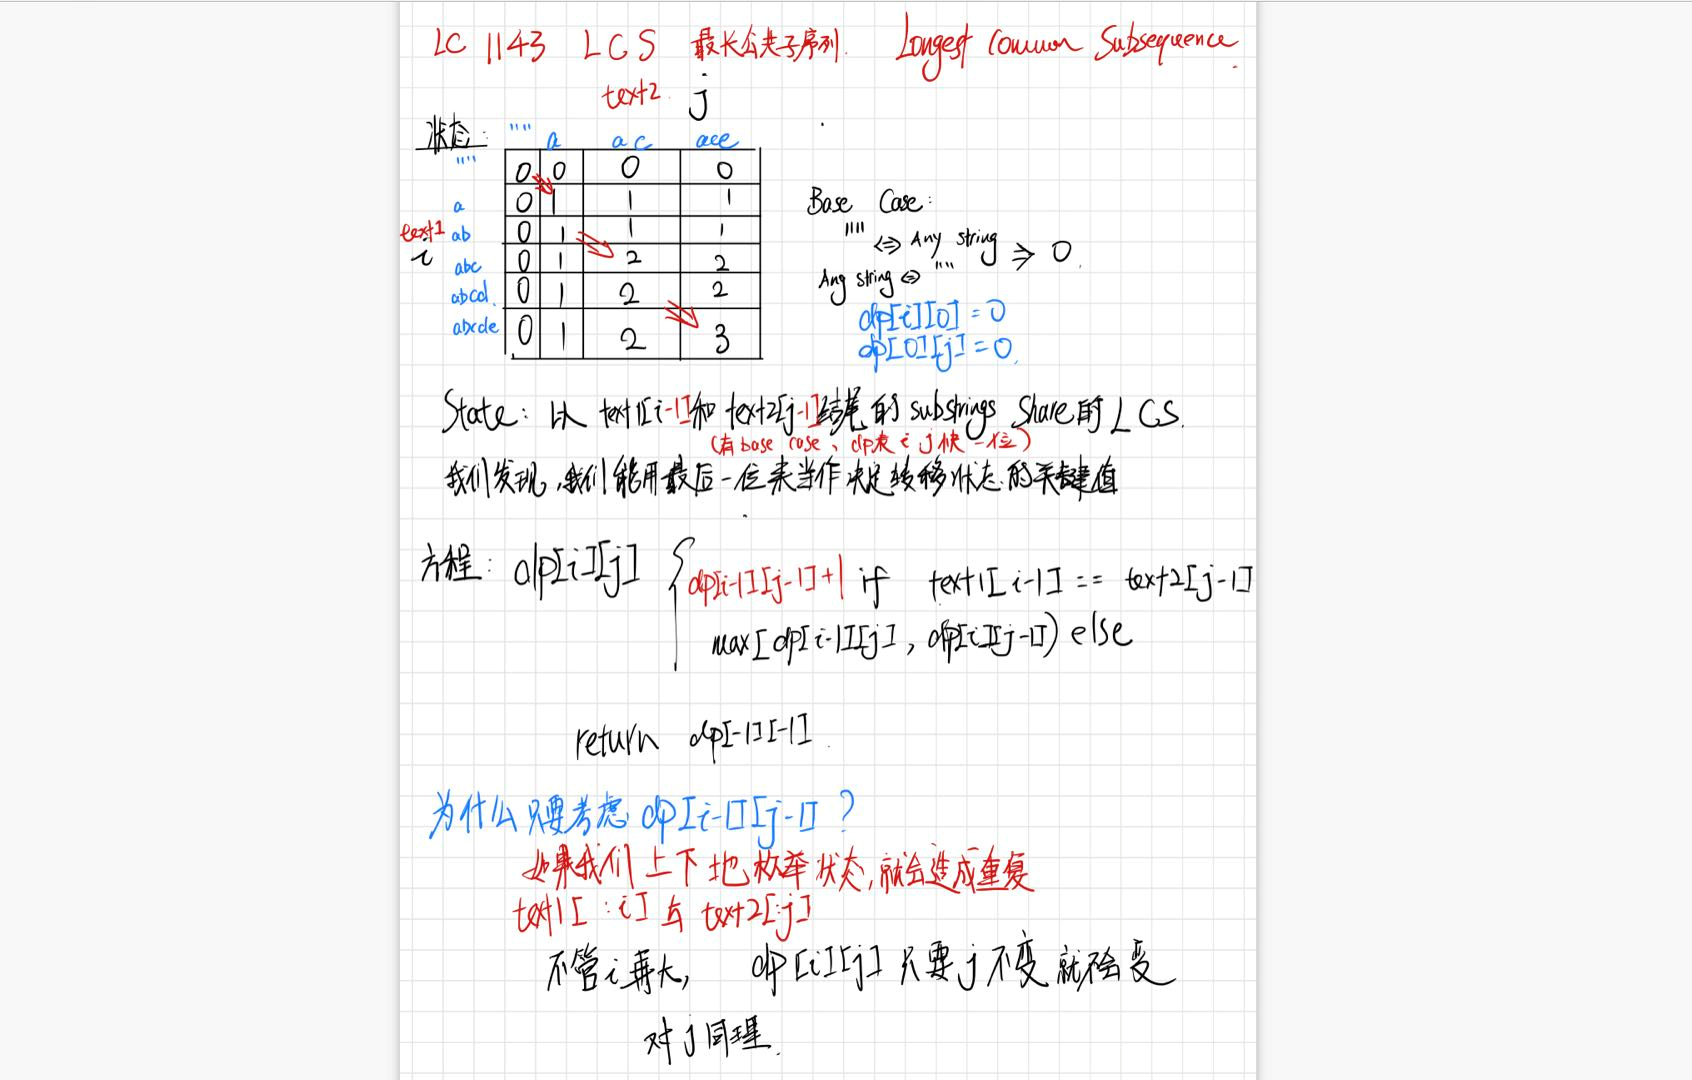 LC 1143 LCS 最长公共子序列. Longest Common Subsequence.
text2 j
状态: "" a ac ace
"" 0 0 0 0
a 0 1 1 1
text1 ab 0 1 1 1
i abc 0 1 2 2
abcd 0 1 2 2
abcde 0 1 2 3
Base Case:
"" <=> Any string => 0
Any string <=> ""
dp[i][0] = 0
dp[0][j] = 0
State: 以 text1[i-1]和 text2[j-1]结尾的 substrings share的 LCS.
(有 base case、dp表 i j 快一位)
我们发现,我们能用最后一位来当作决定转移状态的关键值
方程: dp[i][j] { dp[i-1][j-1]+1 if text1[i-1] == text2[j-1]
max[dp[i-1][j], dp[i][j-1]) else
return dp[-1][-1]
为什么只要考虑 dp[i-1][j-1] ?
如果我们上下地枚举状态,就会造成重复
text1[:i] 与 text2[:j]
不管i再大, dp[i][j] 只要j不变就不会变
对j同理.